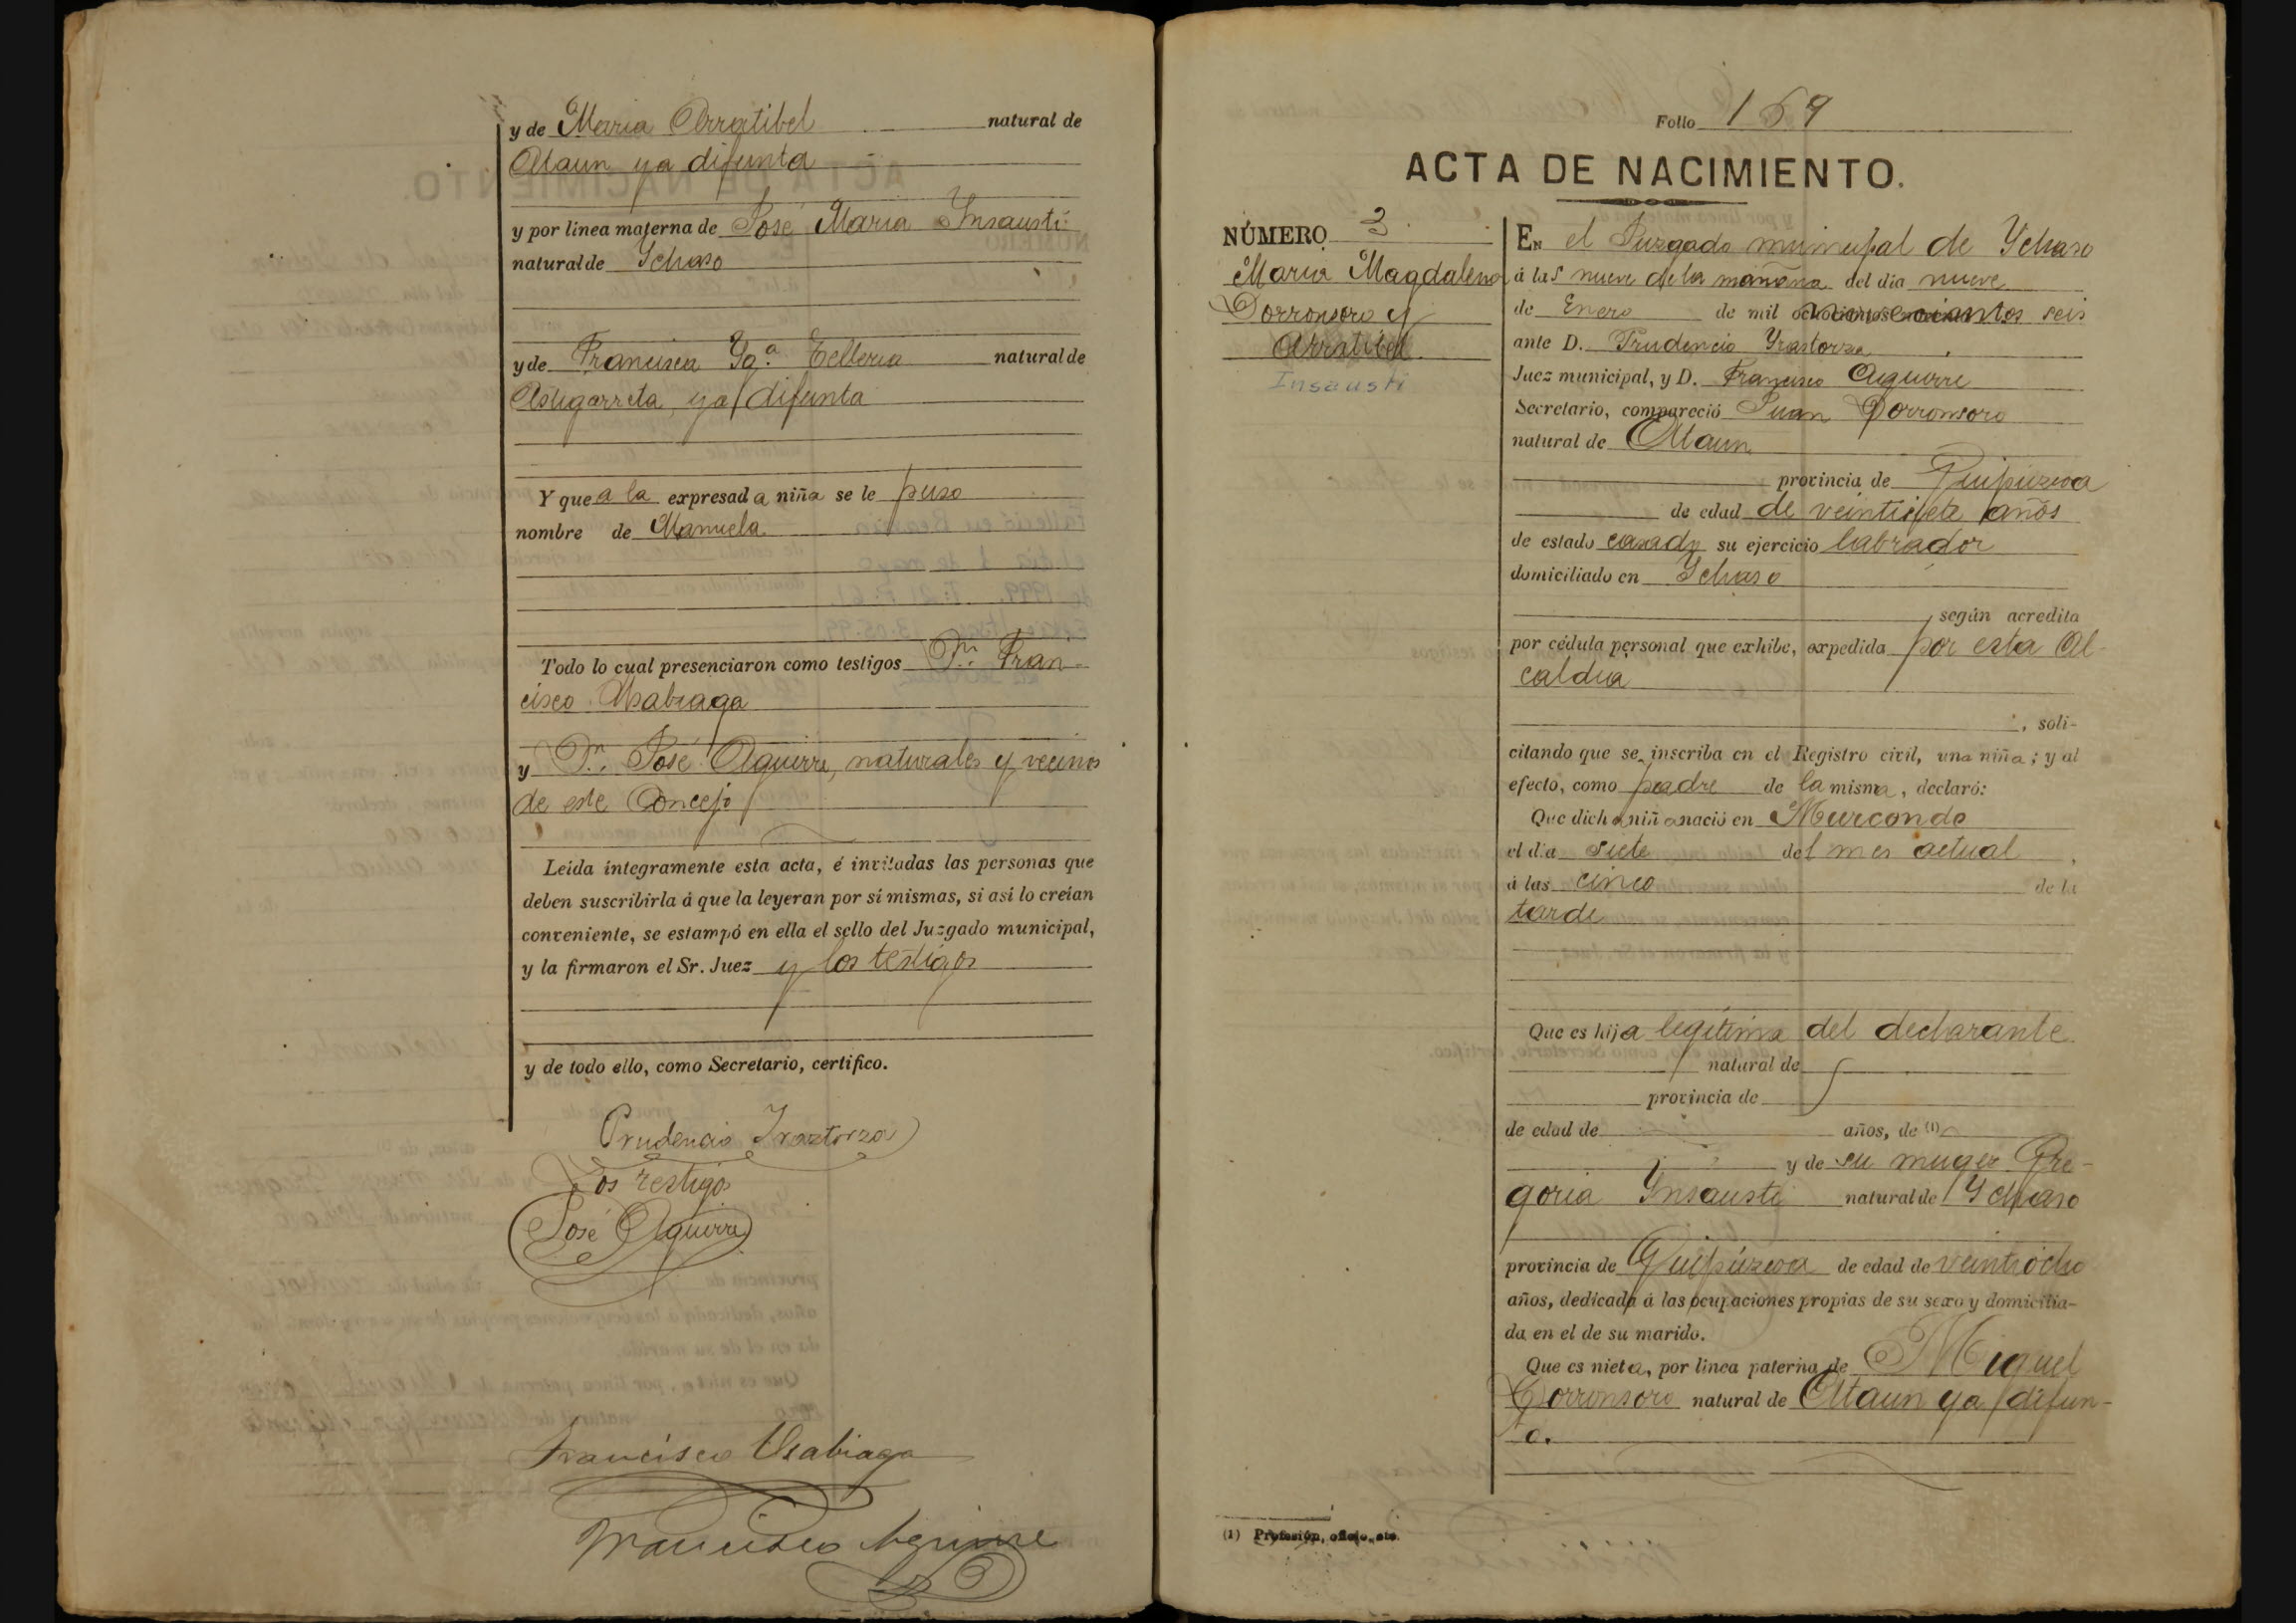 y de Maria Arratibel natural de
Ataun ya difunta
y por linea materna de José Maria Ynsausti
natural de Ychaso
y de Francisca Yg.ª Telleria natural de
Astigarreta, ya difunta
Y que a la expresada niña se le puso
nombre de Manuela
Todo lo cual presenciaron como testigos Dn. Fran-
cisco Usabiaga
y Dn. José Aguirre, naturales y vecinos
de este Concejo
Leída íntegramente esta acta, é invitadas las personas que
deben suscribirla á que la leyeran por sí mismas, si así lo creían
conveniente, se estampó en ella el sello del Juzgado municipal,
y la firmaron el Sr. Juez y los testigos
y de todo ello, como Secretario, certifico.
Prudencio Yraztorza
Los testigos
José Aguirre
Francisco Usabiaga
Francisco Aguirre
Folio 159
ACTA DE NACIMIENTO.
NÚMERO 3
Maria Magdalena
Dorronsoro y
Arratibel
Insausti
En el Juzgado municipal de Ychaso
á las nueve de la mañana del dia nueve
de Enero de mil novecientos seis
ante D. Prudencio Yrastorza
Juez municipal, y D. Francisco Aguirre
Secretario, compareció Juan Dorronsoro
natural de Ataun
provincia de Guipúzcoa
de edad de veintisiete años
de estado casado su ejercicio labrador
domiciliado en Ychaso
según acredita
por cédula personal que exhibe, expedida por esta Al-
caldia
, soli-
citando que se inscriba en el Registro civil, una niña; y al
efecto, como padre de la misma, declaró:
Que dicha niña nació en Murconde
el dia siete del mes actual,
á las cinco de la
tarde
Que es hija legitima del declarante
natural de
provincia de
de edad de años, de (1)
y de su muger Gre-
goria Ynsausti natural de Ychaso
provincia de Guipúzcoa de edad de veintiocho
años, dedicada á las ocupaciones propias de su sexo y domicilia-
da en el de su marido.
Que es nieta, por linea paterna de Miguel
Dorronsoro natural de Ataun ya difun-
to.
(1) Profesión, oficio, etc.